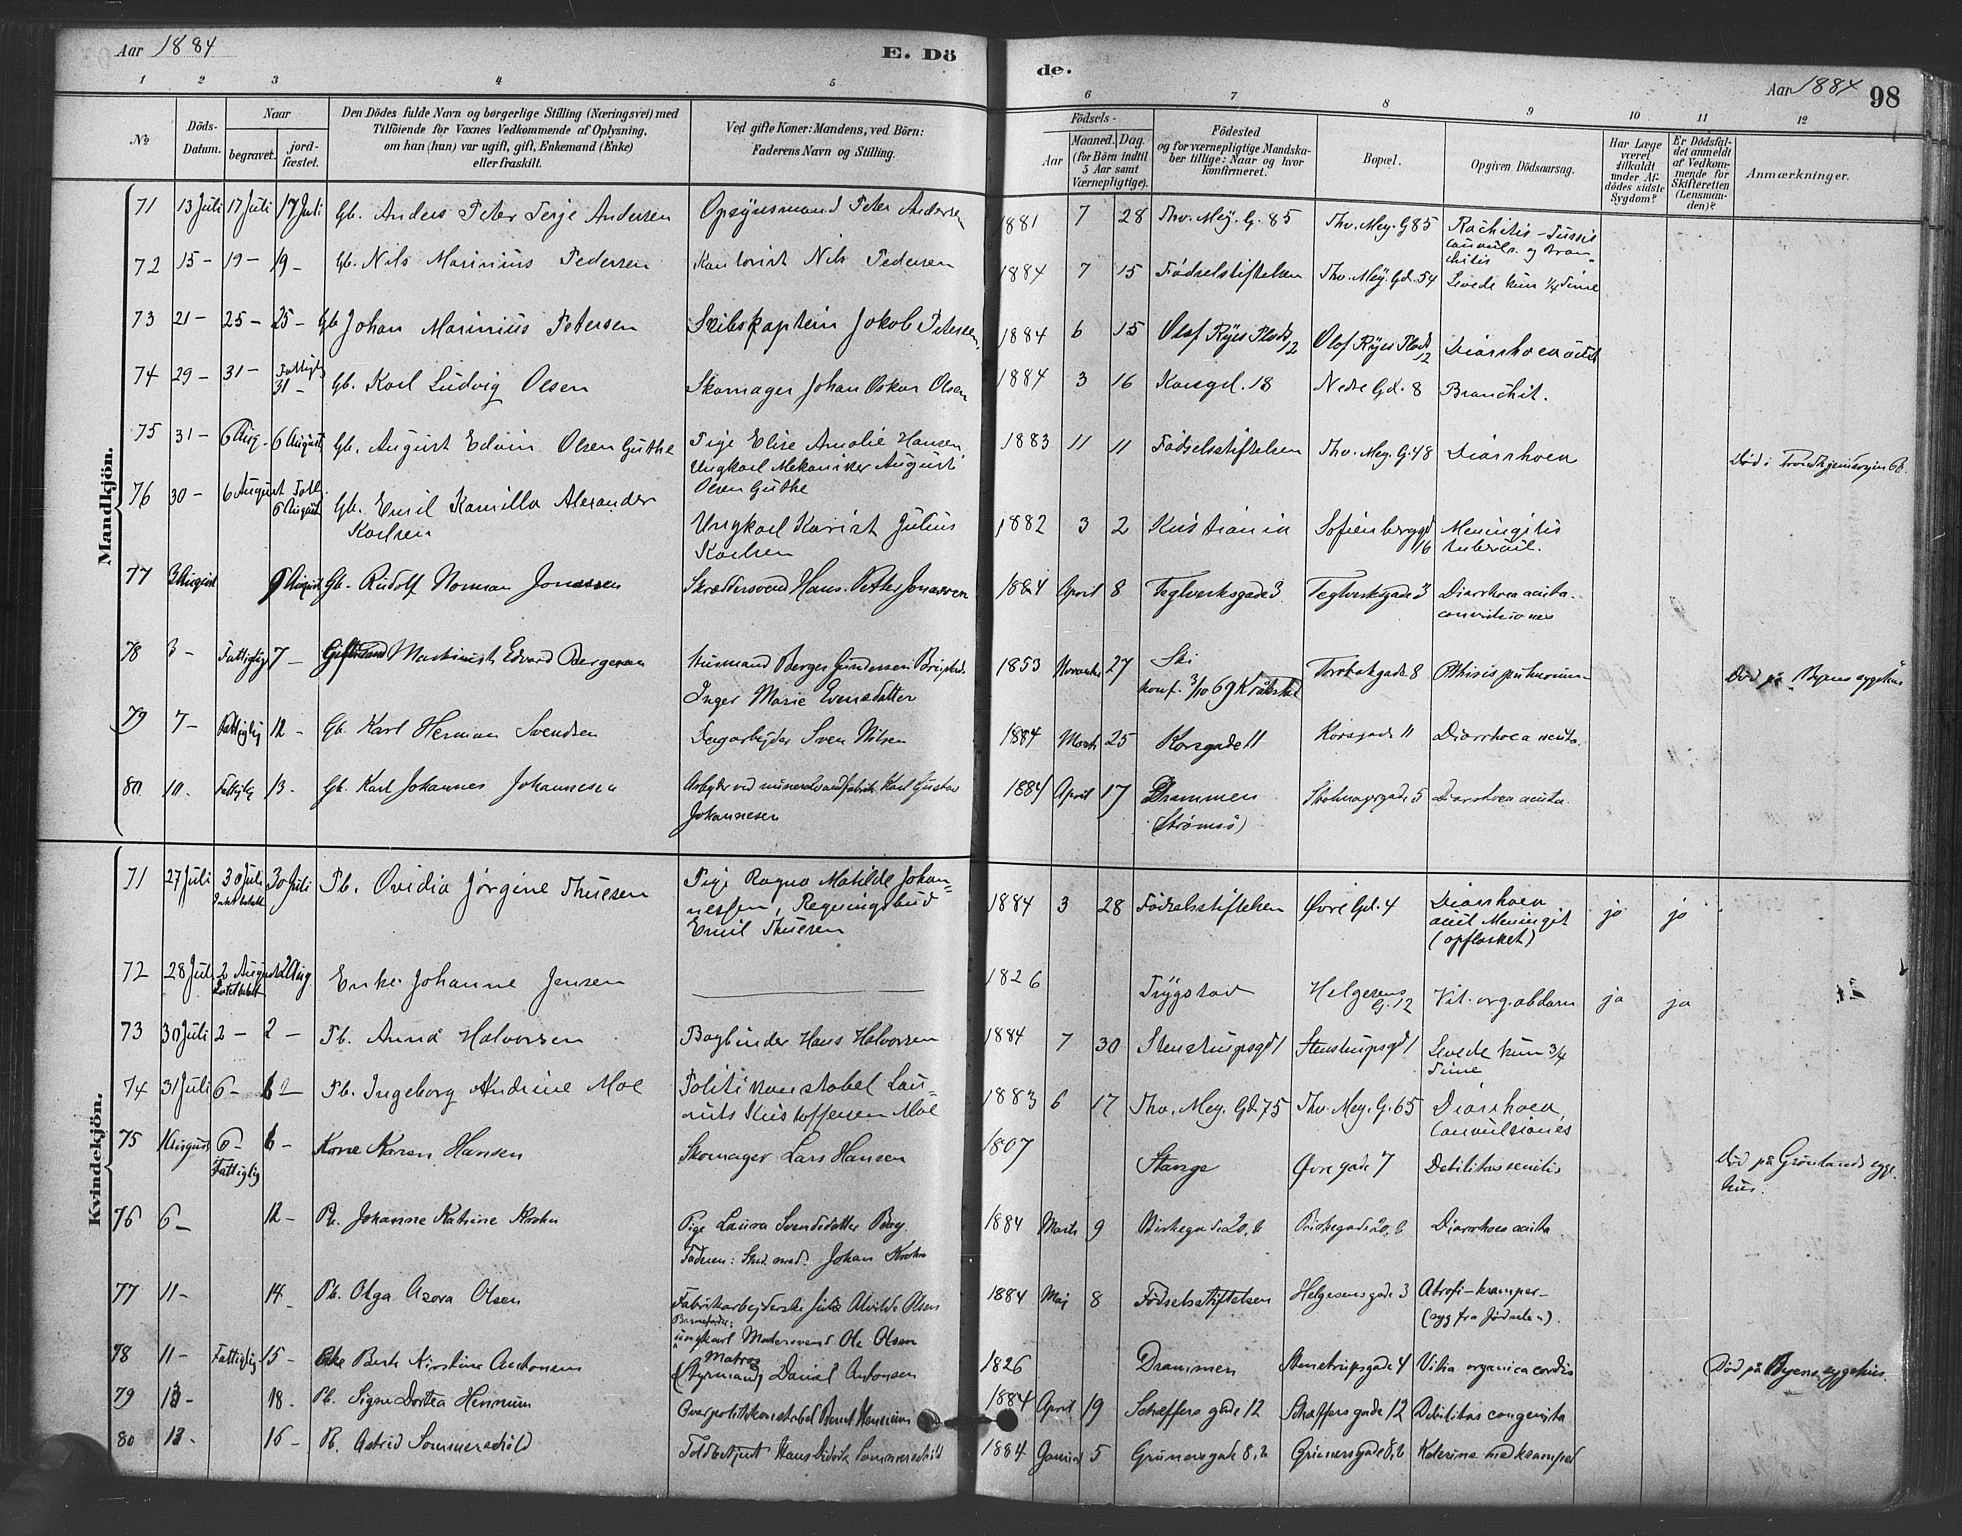 Aar 1884
E. Dö
de.
Aar 1884
98
1 2 3 4 5 6 7 8 9 10 11 12
No
Döds-
Datum.
Naar
begravet.
jord-
fæstet.
Den Dödes fulde Navn og borgerlige Stilling (Næringsvei) med
Tilföiende for Voxnes Vedkommende af Oplysning,
om han (hun) var ugift, gift, Enkemand (Enke)
eller fraskilt.
Ved gifte Koner: Mandens, ved Börn:
Faderens Navn og Stilling.
Födsels-
Aar
Maaned. Dag.
(for Börn indtil
5 Aar samt
Værnepligtige).
Födested
og for værnepligtige Mandska-
ber tillige: Naar og hvor
konfirmeret.
Bopæl.
Opgiven Dödsaarsag.
Har Læge
været
tilkaldt
under Af-
dödes sidste
Sygdom?
Er Dödsfal-
det anmeldt
af Vedkom-
mende for
Skifteretten
(Lensman-
den)?
Anmærkninger.
Mandkjön.
71 13 Juli 17 Juli 17 Juli Gb. Anders Peter Terje Andersen Opsynsmand Peter Andersen 1881 7 28 Thv. Mey. G. 85 Thv. Mey. G 85 Rachitis - Tussis
convuls. og Bron-
chitis
72 15 - 19 - 19 - Gb. Nils Marinius Pedersen Kontorist Nils Pedersen 1884 7 15 Födselsstiftelsen Thv. Mey. Gd. 54 Levede kun 1/4 Time
73 21 - 25 - 25 - Gb Johan Marinius Petersen Skibskaptein Jakob Petersen 1884 6 15 Olaf Ryes Plads 12 Olaf Ryes Plads 12 Diarrhoea acut
74 29 - 31 - Fattiglig 31 - Gb. Karl Ludvig Olsen Skomager Johan Oskar Olsen 1884 3 16 Korsgd. 18 Nedre Gd. 8 Bronchit.
75 31 - 6 Aug. 6 August Gb. August Edvin Olsen Guthe Pige Elise Amalie Hansen
Ungkarl Mekaniker August
Olsen Guthe 1883 11 11 Födselsstiftelsen Thv. Mey. G. 48 Diarrhoea Död i
76 30 - 6 August 6 August Gb. Emil Kamillo Alexander
Karlsen Ungkarl Julius
Karlsen 1882 3 2 Kristiania Sofienberggd 16 Meningitis
tubercul.
77 3 August 9 August Gb. Rudolf Norman Jonassen Skræddersvend Hans Petter Jonassen 1884 April 8 Teglverksgade 3 Teglverksgade 3 Diarrhoea acuta.
convulsiones
78 3 - Fattiglig 7 - Maskinist Edvard Bergersen Husmand Berger Gundersen
Inger Marie Evensdatter 1853 November 27 Ski
konf. 3/10 69 Kråkstad Torvbakgade 8 Phthisis pulmonum Död på Byens sygehus
79 7 - Fattiglig 12 - Gb. Karl Herman Svendsen Dagarbejder Sven Nilsen 1884 Marts 25 Korsgade 11 Korsgade 11 Diarrhoea acuta.
80 10. Fattiglig 13. Gb. Karl Johannes Johannesen Arbejder ved mineralvandfabrik Karl Gustav
Johannesen 1884 April 17 Drammen
(Strömsö) Skolmagergade 5 Diarrhoea acuta.
Kvindekjön.
71 27 Juli 30 Juli 30 Juli Pb. Ovidia Jörgine Thuesen Pige Ragna Matilde Johan-
nessen, Regningsbud
Emil Thuesen 1884 3 28 Födselsstiftelsen Övre Gd. 4 Diarrhoea
acut Meningit
(opflasket) ja ja
72 28 Juli 2 August 2 Aug. Enke Johanne Jensen 1826 Trygstad Helgesens G. 12 Vit. org. abdom ja ja
73 30 Juli 2 - 2 - Pb. Anna Halvorsen Bogbinder Hans Halvorsen 1884 7 30 Stenstrupsgd 1 Stenstrupsgd 1 Levede kun 3/4
Time
74 31 Juli 6 - 6 - Pb. Ingeborg Andrine Moe Politikonstabel Lau-
rits Kristoffersen Moe 1883 6 17 Thv. Mey. Gd. 75 Thv. Mey. G. 65 Diarrhoea,
Convulsiones
75 August 6 - Fattiglig 6 - Kone Karen Hansen Skomager Lars Hansen 1807 Stange Övre gade 7 Debilitas senilis Död på Grönlands syge
hus.
76 6 - 12 - Pb. Johanne Katrine Krohn Pige Laura Svendsdatter
Faderen: Johan Krohn 1884 Marts 9 Birkegade 20, b Birkegade 20, b Diarrhoea acuta
77 11 - 14 - Pb. Olga Asora Olsen Fabrikarbejderske Julie Alvilde Olsen
Barnefader:
ungkarl Malersvend Ole Olsen 1884 Maj 8 Födselsstiftelsen Helgesensgade 3 Atrofi - kramper -
(syg fra Födselen).
78 11 - Fattiglig 15 - Enke Berte Kirstine Antonsen Matros
(Styrmand) Daniel Antonsen 1826 Drammen Stenstrupsgade 4 Vitia organica cordis Död på Byens sygehus.
79 13 - 18. Pb. Signe Dortea Hennum Overpolitikonstabel Bernt Hennum 1884 April 19 Schæffers gade 12 Schæffers gade 12 Debilitas congenita
80 13. 16 - Pb. Astrid Sommerschild Toldbetjent Hans Sommerschild 1884 Januar 5 Grünersgade 8, b Grünersgade 8, b Kolerine med kramper